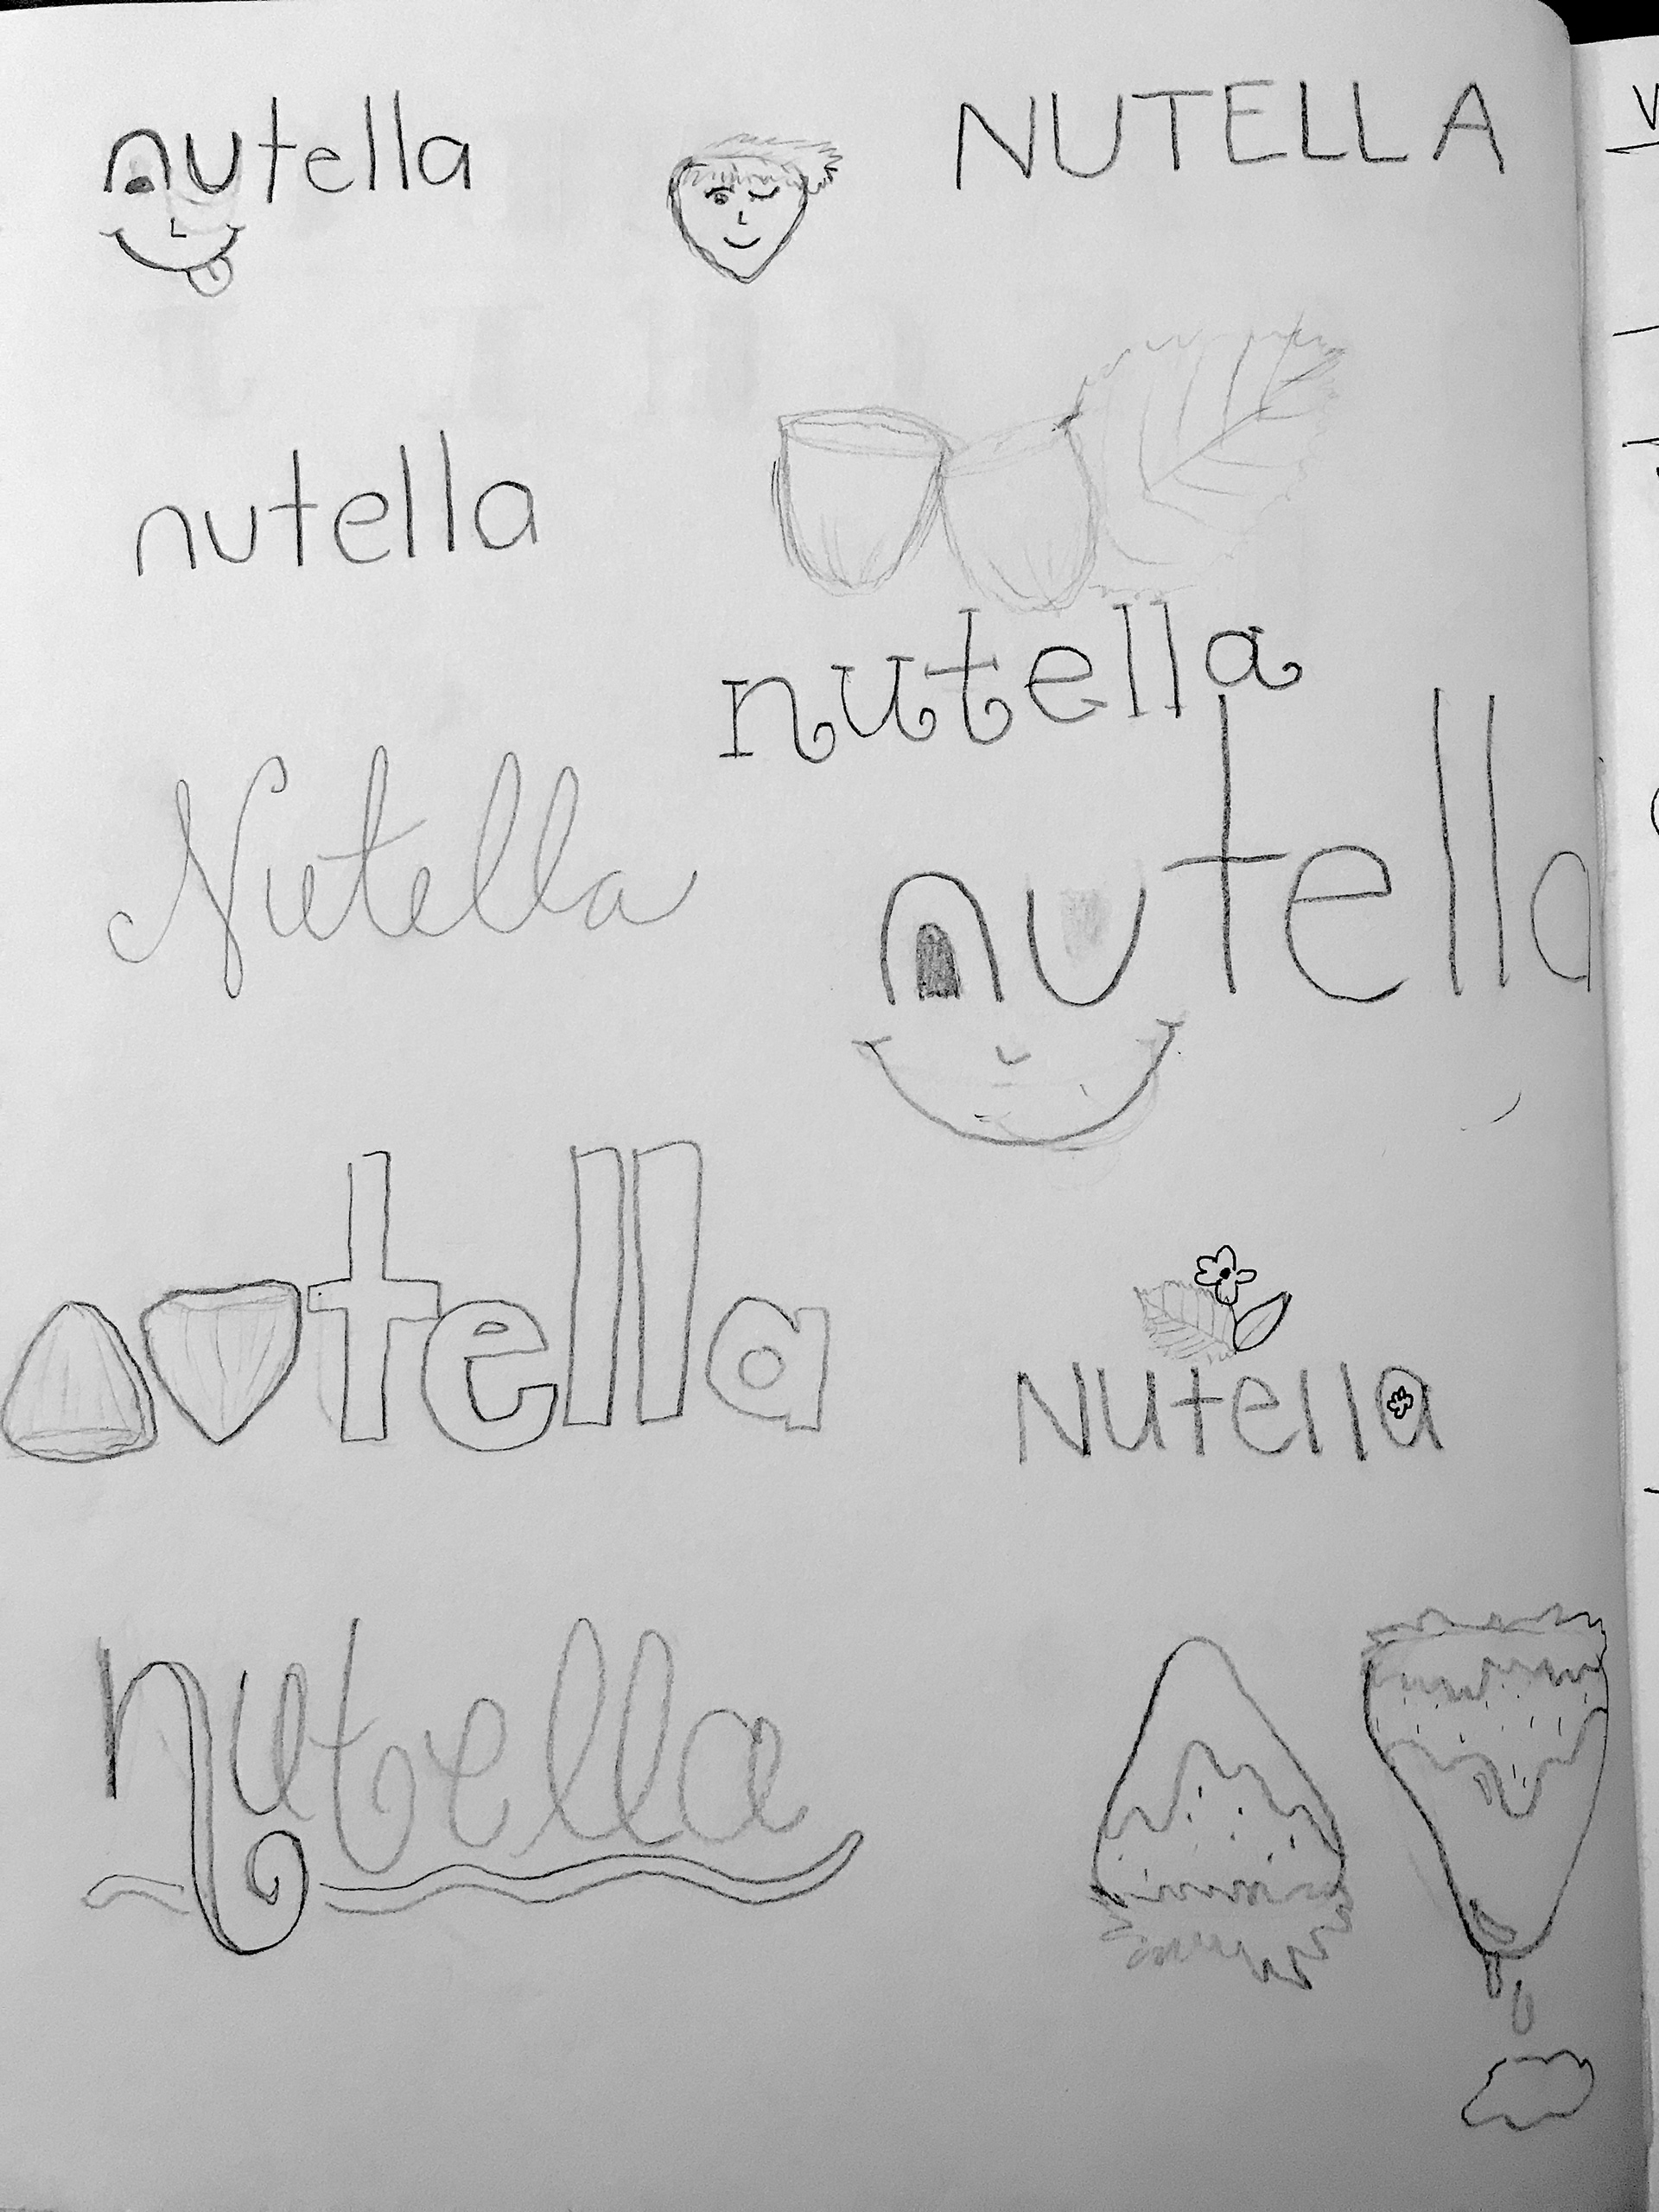 nutella
NUTELLA
nutella
nutella
Nutella
nutella
nutella
Nutella
nutella